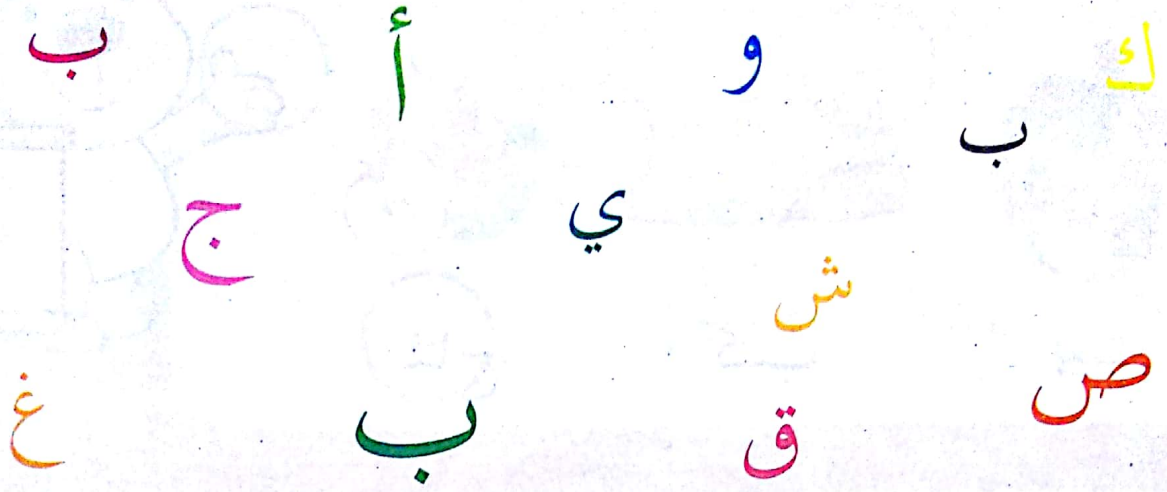 ك و أ ب
ب
ي ج
ش
ص ق ب غ